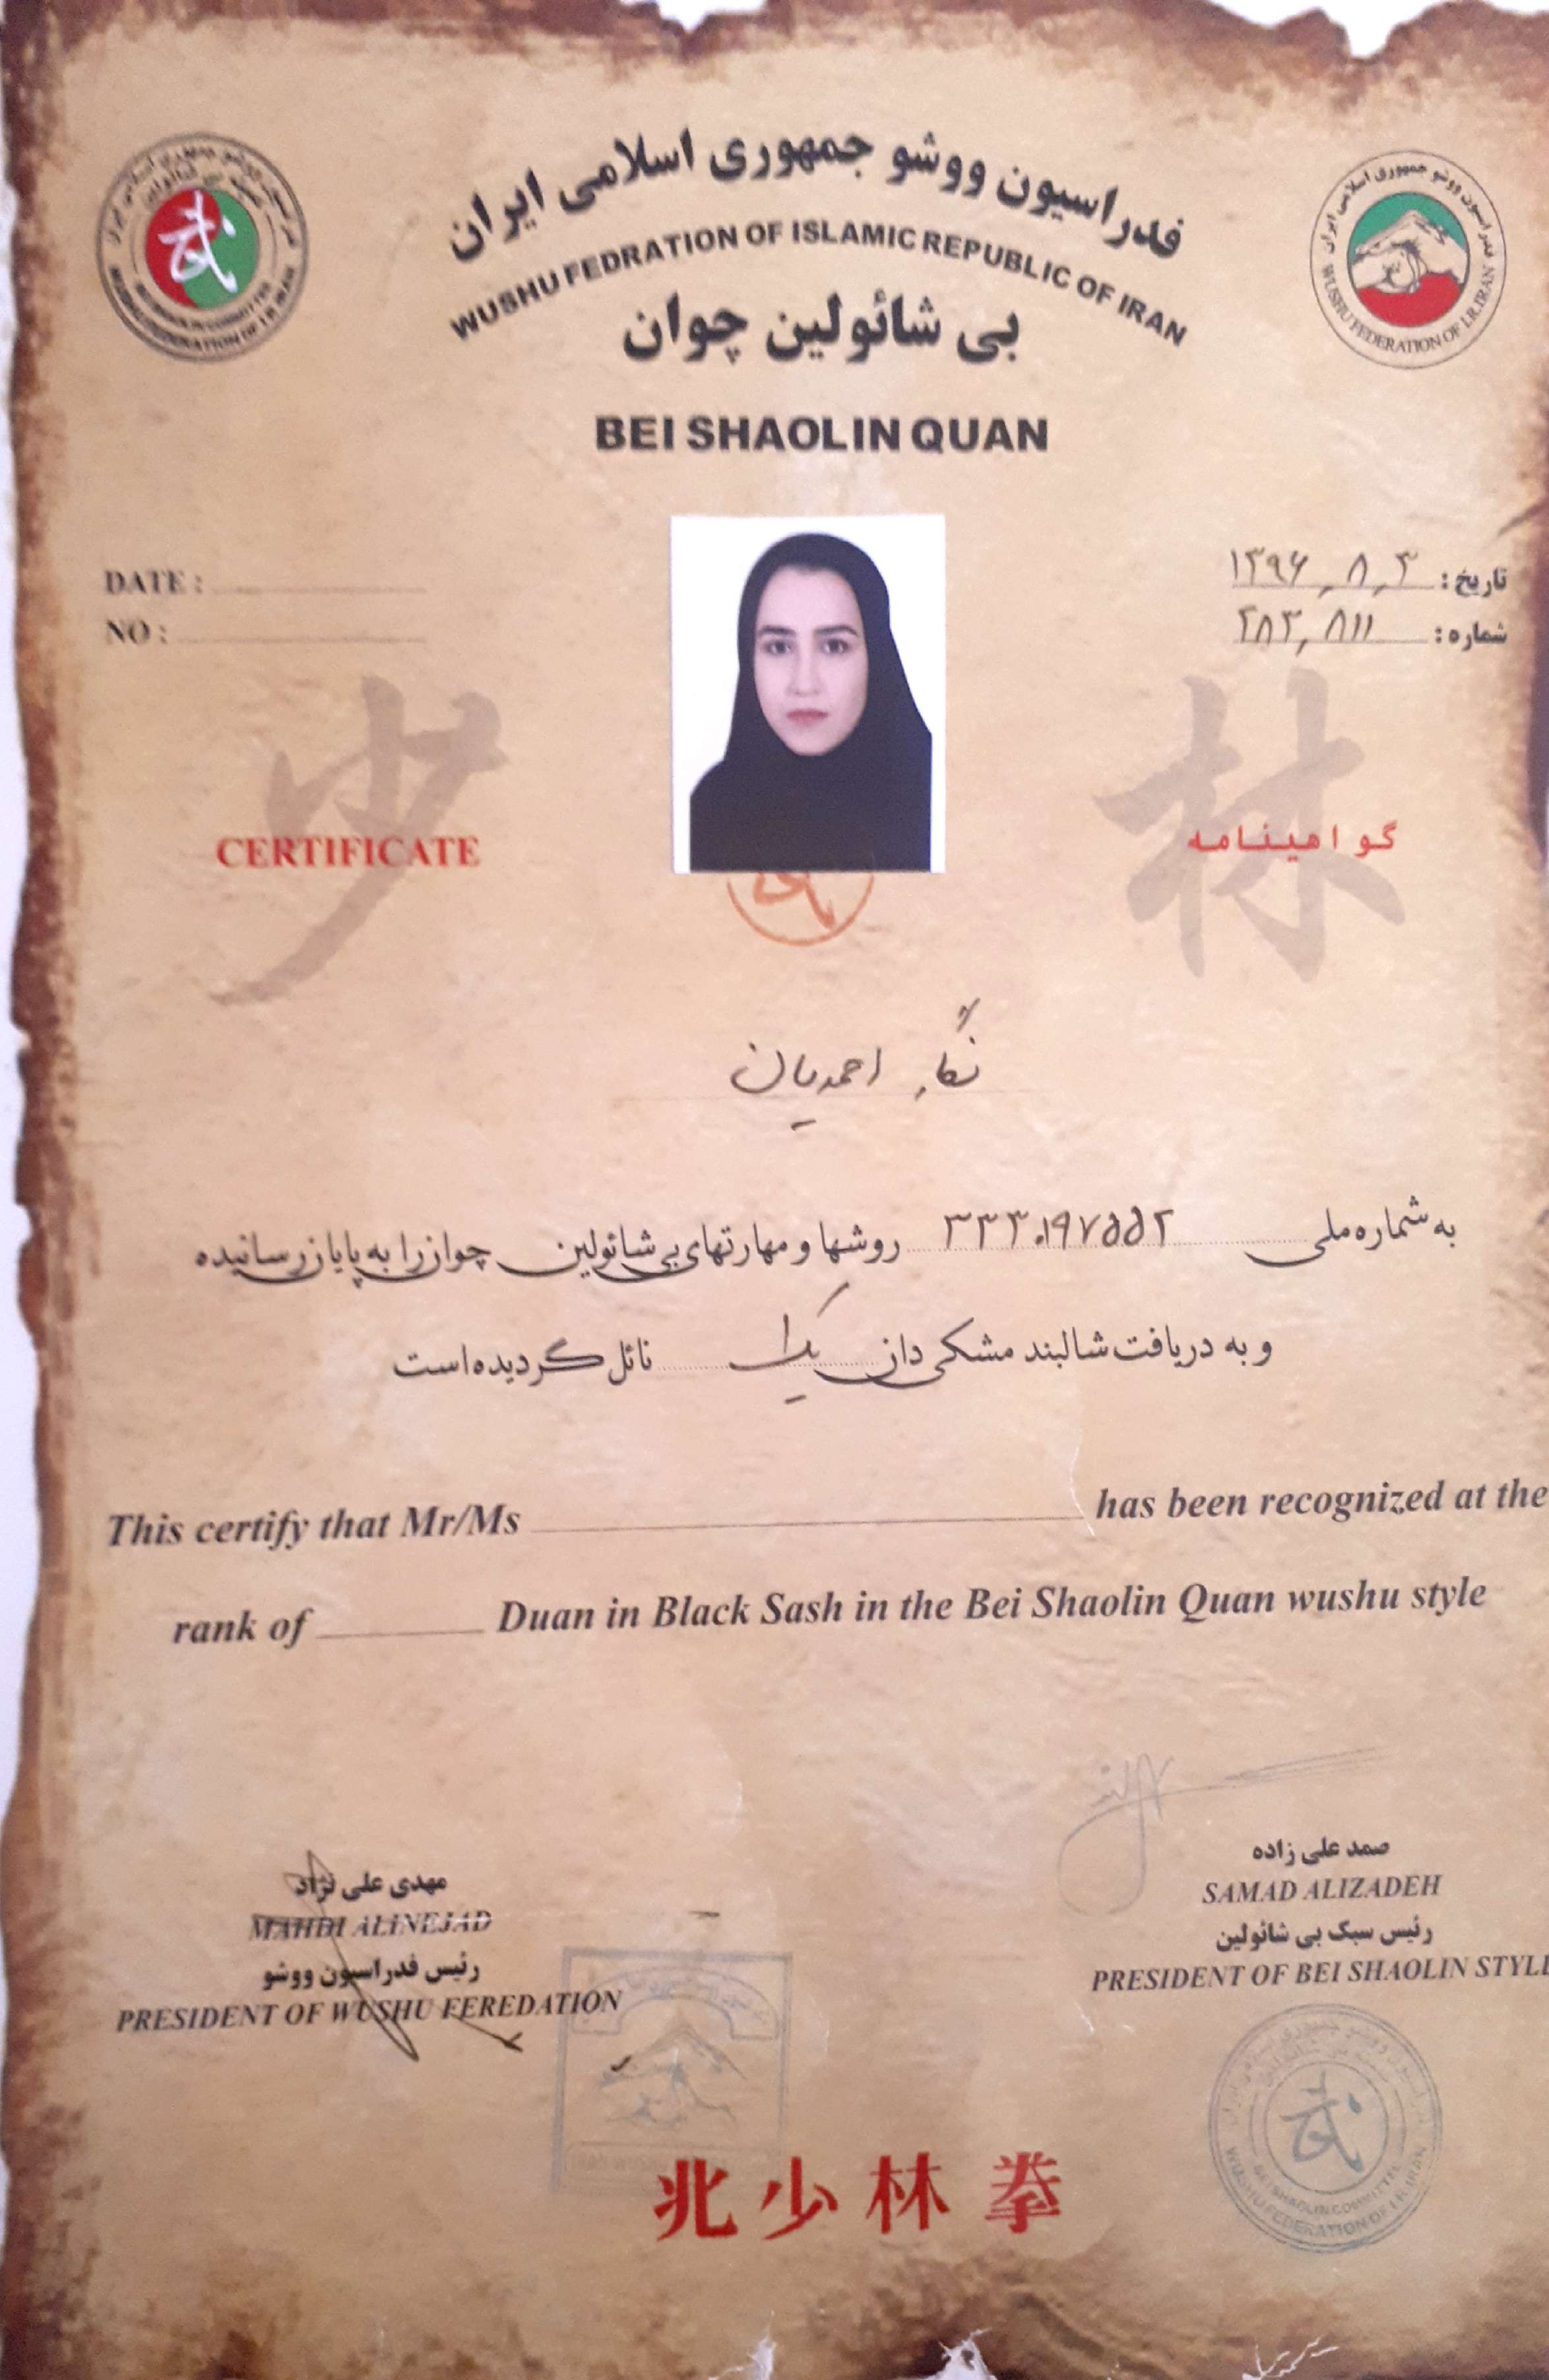 فدراسیون ووشو جمهوری اسلامی ایران
WUSHU FEDRATION OF ISLAMIC REPUBLIC OF IRAN
بی شائولین چوان
BEI SHAOLIN QUAN
WUSHU FEDERATION OF I.R.IRAN
DATE :
تاریخ : ۱۳۹۶,۸,۳
NO :
شماره : ۲۸۳,۸۱۱
少 林
CERTIFICATE
گواهینامه
نگار احمدیان
به شماره ملی ۳۳۳۰۱۹۷۵۵۲ روشها و مهارتهای بی شائولین چوان را به پایان رسانیده
و به دریافت شالبند مشکی دان یک نائل گردیده است
This certify that Mr/Ms has been recognized at the
rank of Duan in Black Sash in the Bei Shaolin Quan wushu style
مهدی علی نژاد
MAHDI ALINEJAD
رئیس فدراسیون ووشو
PRESIDENT OF WUSHU FEREDATION
صمد علی زاده
SAMAD ALIZADEH
رئیس سبک بی شائولین
PRESIDENT OF BEI SHAOLIN STYLE
BEI SHAOLIN COMMITTEE
WUSHU FEDERATION OF I.R.IRAN
北少林拳